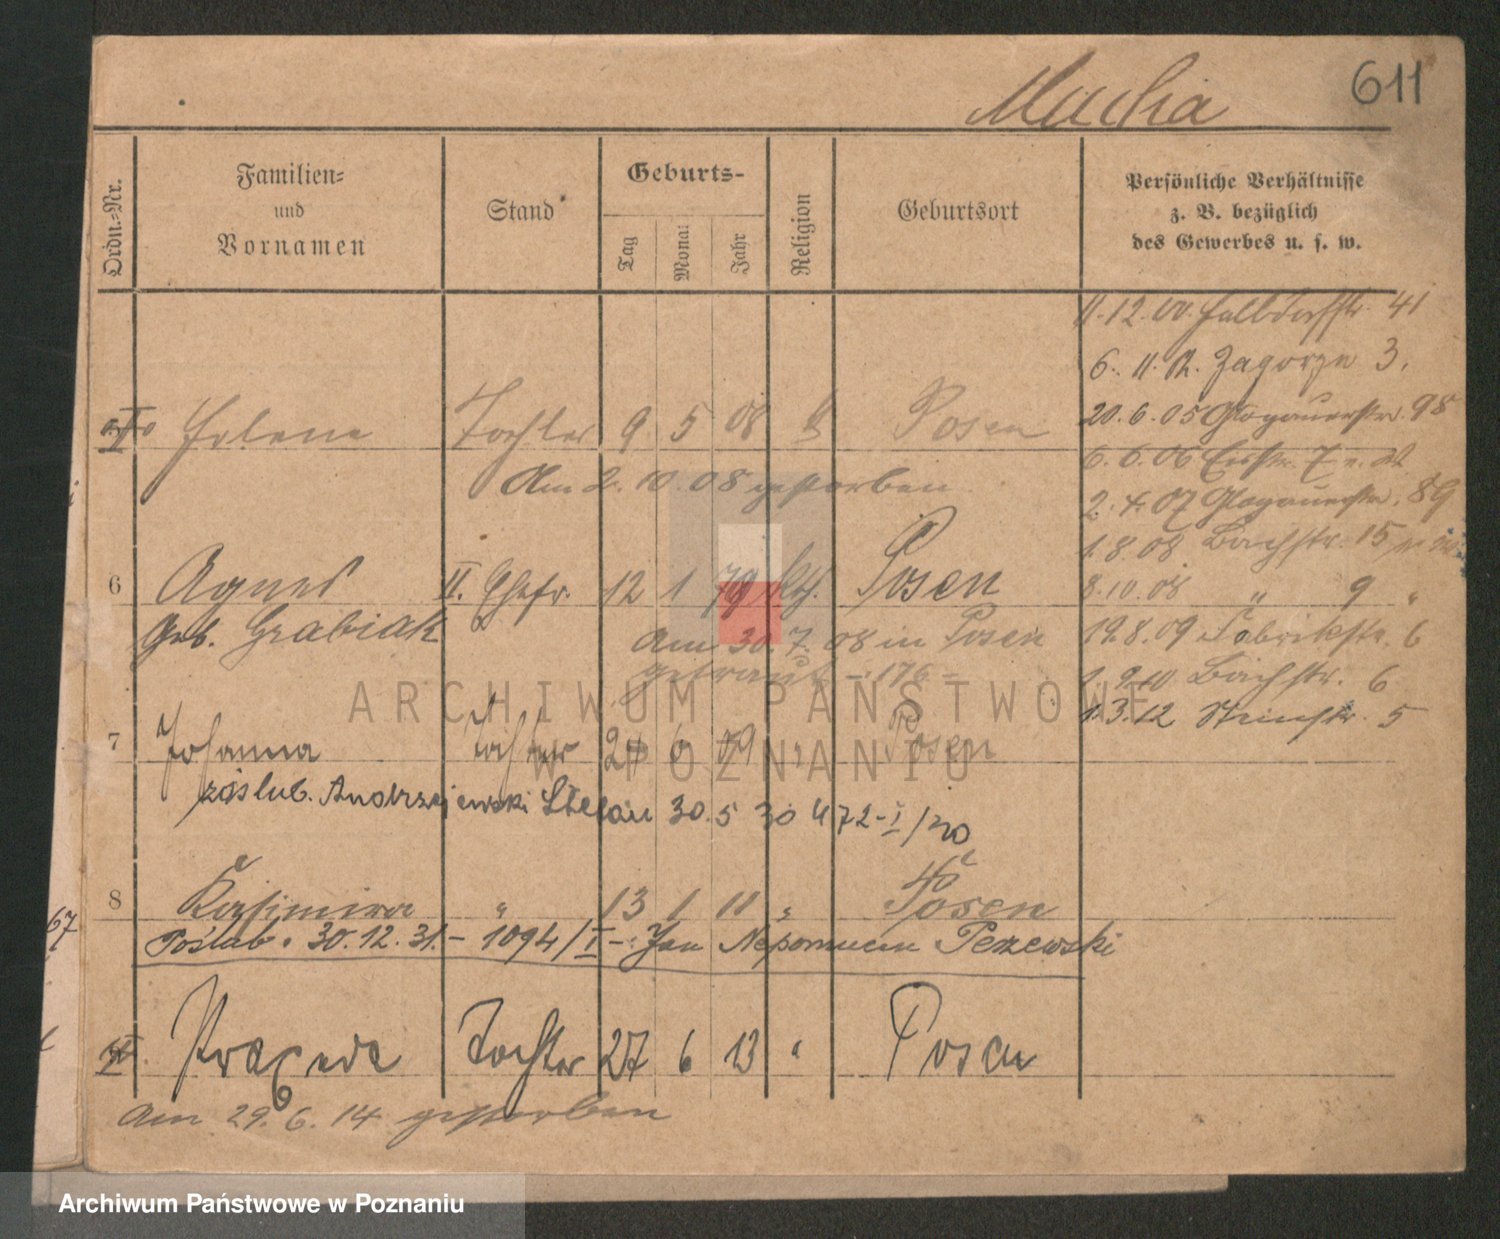 Macha 611
Ordn.=Nr.
Familien=
und
Vornamen
Stand
Geburts-
Tag
Mona:
Jahr
Religion
Geburtsort
Persönliche Verhältnisse
z. B. bezüglich
des Gewerbes u. s. w.
11.12.00. Halbdorfstr. 41
6. 11. 02. Zagorze 3.
20.6.05 Glogauerstr. 98
Helene Tochter 9 5 08 Posen
6.6.06
Am 2. 10. 08 gestorben
2. 4. 07 Glogauerstr. 89
1.8.08 Bachstr. 15
6 Agnes II. Ehefr. 12 1 79 kth. Posen
8.10.08 " 9 "
geb. Grabiak
Am 30. 7. 08 in Posen
19.8.09 Fabrikstr. 6
getraut - 176 -
1. 9.10 Bachstr. 6
1.3.12 Steinstr. 5
7 Johanna Tochter 27 6 09 " Posen
zaślub. Andrzejewski Stefan 30. 5 30 472-I/30
8 Kasimira " 13 1 11 " Posen
Poślub. 30.12.31. - 1094/I - Jan Nepomucen Pezewski
Praxeda Tochter 27 6 13 " Posen
Am 29. 6. 14 gestorben
67
ARCHIWUM PAŃSTWOWE
W POZNANIU
Archiwum Państwowe w Poznaniu